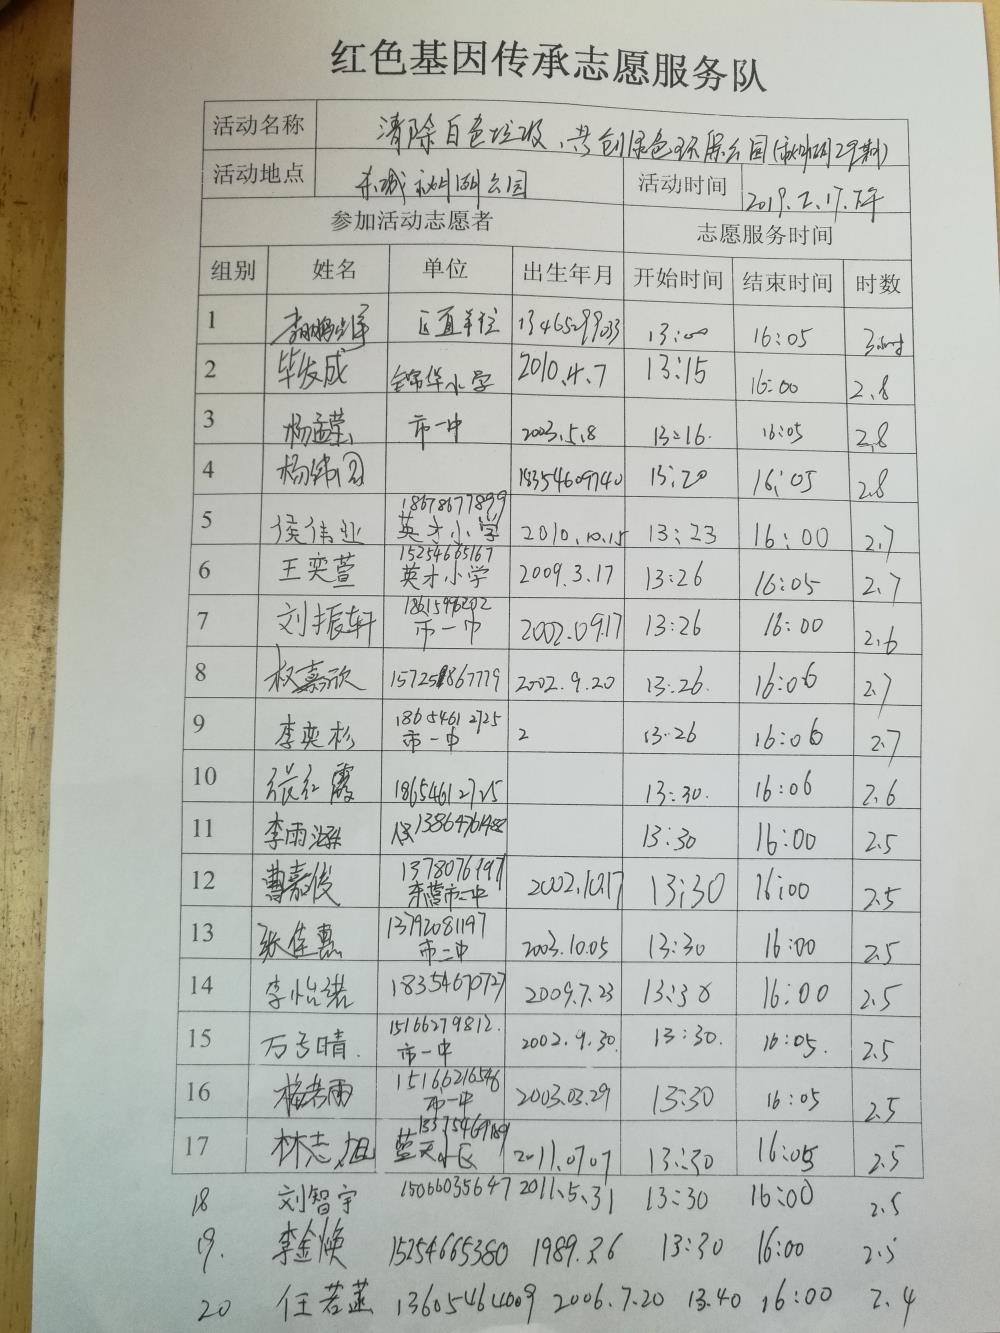 红色基因传承志愿服务队
活动名称 清除白色垃圾、共创绿色环保公园
活动地点 东城 公园 活动时间 2019.2.17.下午
参加活动志愿者 志愿服务时间
组别 姓名 单位 出生年月 开始时间 结束时间 时数
1 区直单位 13465299033 13:00 16:05
2 毕发成 锦华小学 2010.4.7 13:15 16:00 2.8
3 杨孟莹 市一中 2003.5.8 13:16. 16:05 2.8
4 18354609740 13:20 16:05 2.8
18678677899
5 侯伟业 英才小学 2010.10.15 13:23 16:00 2.7
15254665167
6 王奕萱 英才小学 2009.3.17 13:26 16:05 2.7
7 刘振轩 市一中 2002.09.17 13:26 16:00 2.6
8 权嘉欣 2002.9.20 13:26. 16:06 2.7
18654612725
9 李奕杉 市一中 2 13:26 16:06 2.7
10 张红霞 18654612725 13:30. 16:06 2.6
11 李雨涵 13:30 16:00 2.5
12 曹嘉俊 东营市一中 2002.10.17 13:30 16:00 2.5
13792081197
13 张佳惠 市二中 2003.10.05 13:30 16:00 2.5
14 李怡诺 18354670727 2009.7.23 13:30 16:00 2.5
15166279812.
15 万 晴. 市一中 2002.9.30. 13:30. 16:05. 2.5
15166216546
16 市一中 2003.03.29 13:30 16:05 2.5
17 林志旭 蓝天小区 2011.07.07 13:30 16:05 2.5
18 刘智宇 15066035647 2011.5.31 13:30 16:00 2.5
19. 李金焕 15254665380 1989.3.6 13:30 16:00 2.5
20 任若菡 13605464009 2006.7.20 13.40 16:00 2.4